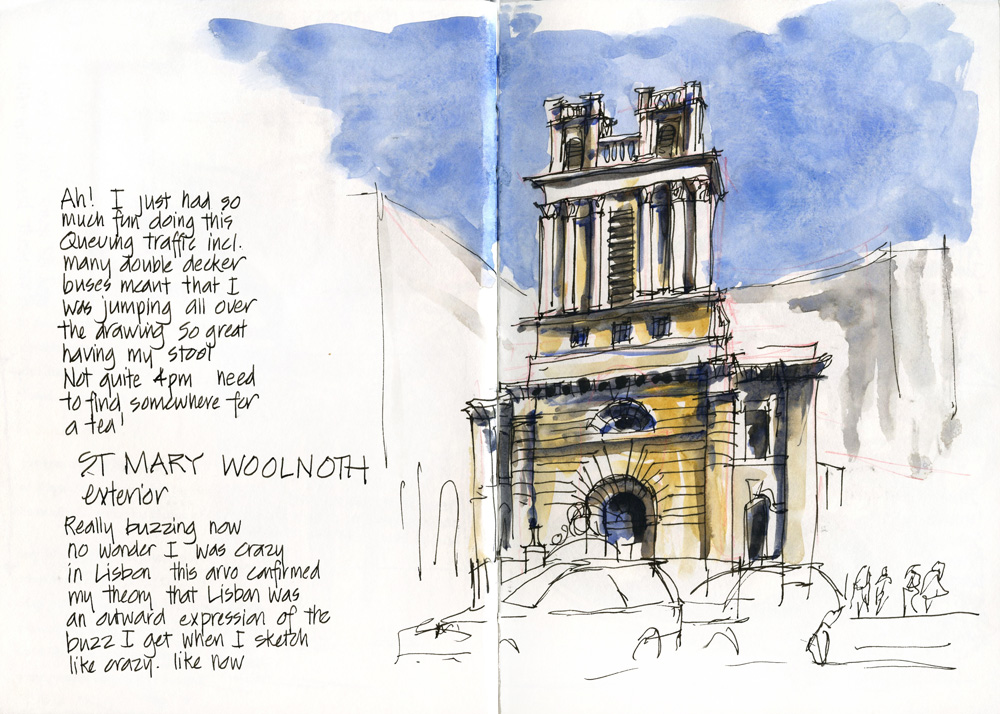 Ah! I just had so
much fun doing this
Queuing traffic incl.
many double decker
buses meant that I
was jumping all over
the drawing so great
having my stool
Not quite 4pm need
to find somewhere for
a tea!
ST MARY WOOLNOTH
exterior
Really buzzing now
no wonder I was crazy
in Lisbon this arvo confirmed
my theory that Lisbon was
an outward expression of the
buzz I get when I sketch
like crazy. like now